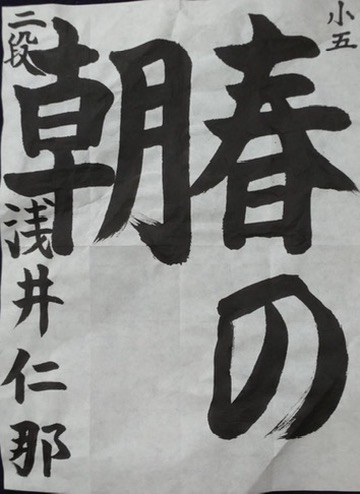 小五
春の
朝
二段
浅井仁那